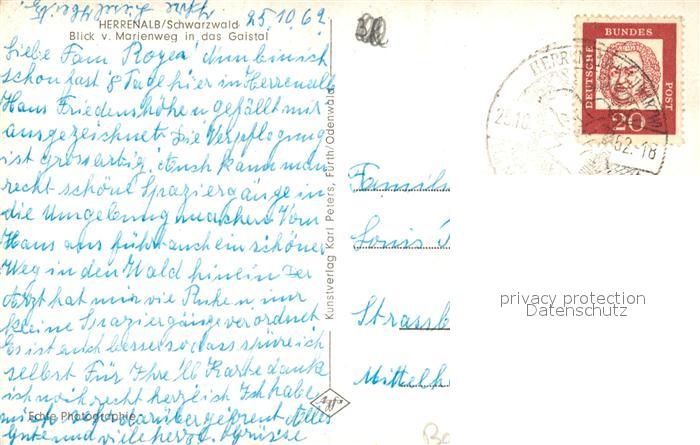 25.10.62
HERRENALB/Schwarzwald
Blick v. Marienweg in das Gaistal
Liebe Fam Royer! Nun bin ich
schon fast 8 Tage hier in Herrenalb
Haus Friedenshöhe gefällt mir
ausgezeichnet. Die Verpflegung
ist grossartig. Auch kann man
recht schöne Spaziergänge in
die Umgebung machen. Vom
Haus aus führt auch ein schöner
Weg in den Wald hinein. Der
Arzt hat mir viel Ruhe u nur
kleine Spaziergänge verordnet
Es ist auch besser so dass spüre ich
selbst Für Ihre lb Karte danke
ich noch recht herzlich Ich habe
mich darüber gefreut Alles
Gute und viele herzl. Grüsse
Echte Photographie
Kunstverlag Karl Peters, Fürth/Odenwald
Agfa
DEUTSCHE
BUNDES
POST
20
62-18
Famili
Louis
Strassb
Mittelh
privacy protection
Datenschutz